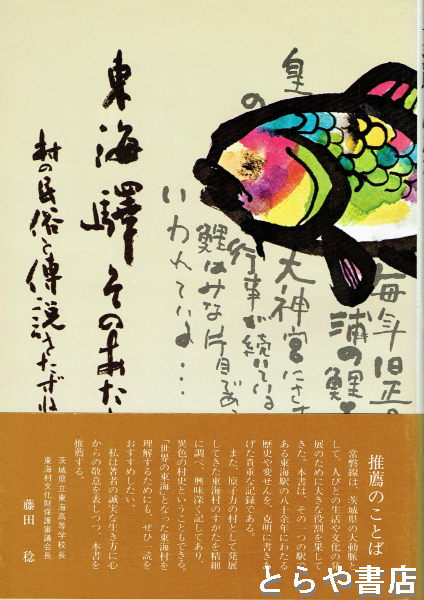 毎年旧正
浦の鯉
皇
大神宮にさ
の
行事が続いている
鯉はみな片目であ
いわれている・・・
東海驛そのあた
村の民俗と傳説をたずね
推薦のことば
常磐線は、茨城県の大動脈と
して、人びとの生活や文化の発
展のために大きな役割を果して
きた。本書は、その一つの駅で
ある東海駅の八十余年にわたる
歴史や変せんを、克明に書きあ
げた貴重な記録である。
また、原子力の村として発展
してきた東海村のすがたを精細
に調べ、興味深く記してあり、
異色の村史ということもできる。
「世界の東海」となった東海村を
理解するためにも、ぜひ一読を
おすすめしたい。
私は著者の誠実な生き方に心
からの敬意を表しつつ、本書を
推薦する。
茨城県立東海高等学校長
東海村文化財保護審議会長
藤田 稔
とらや書店